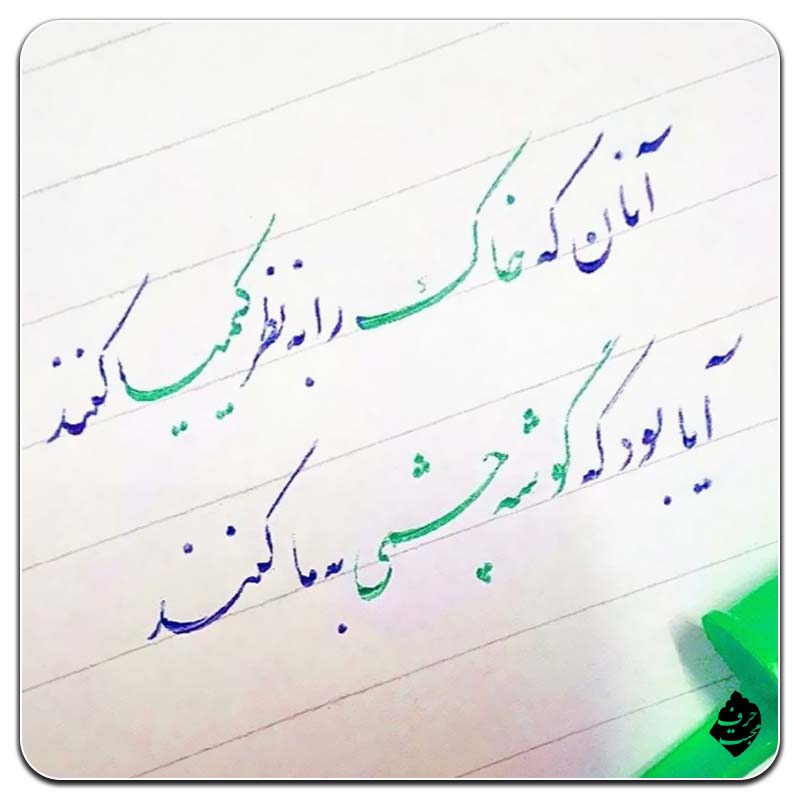 آنان که خاک را به نظر کیمیا کنند
آیا بود که گوشه چشمی به ما کنند
حرف